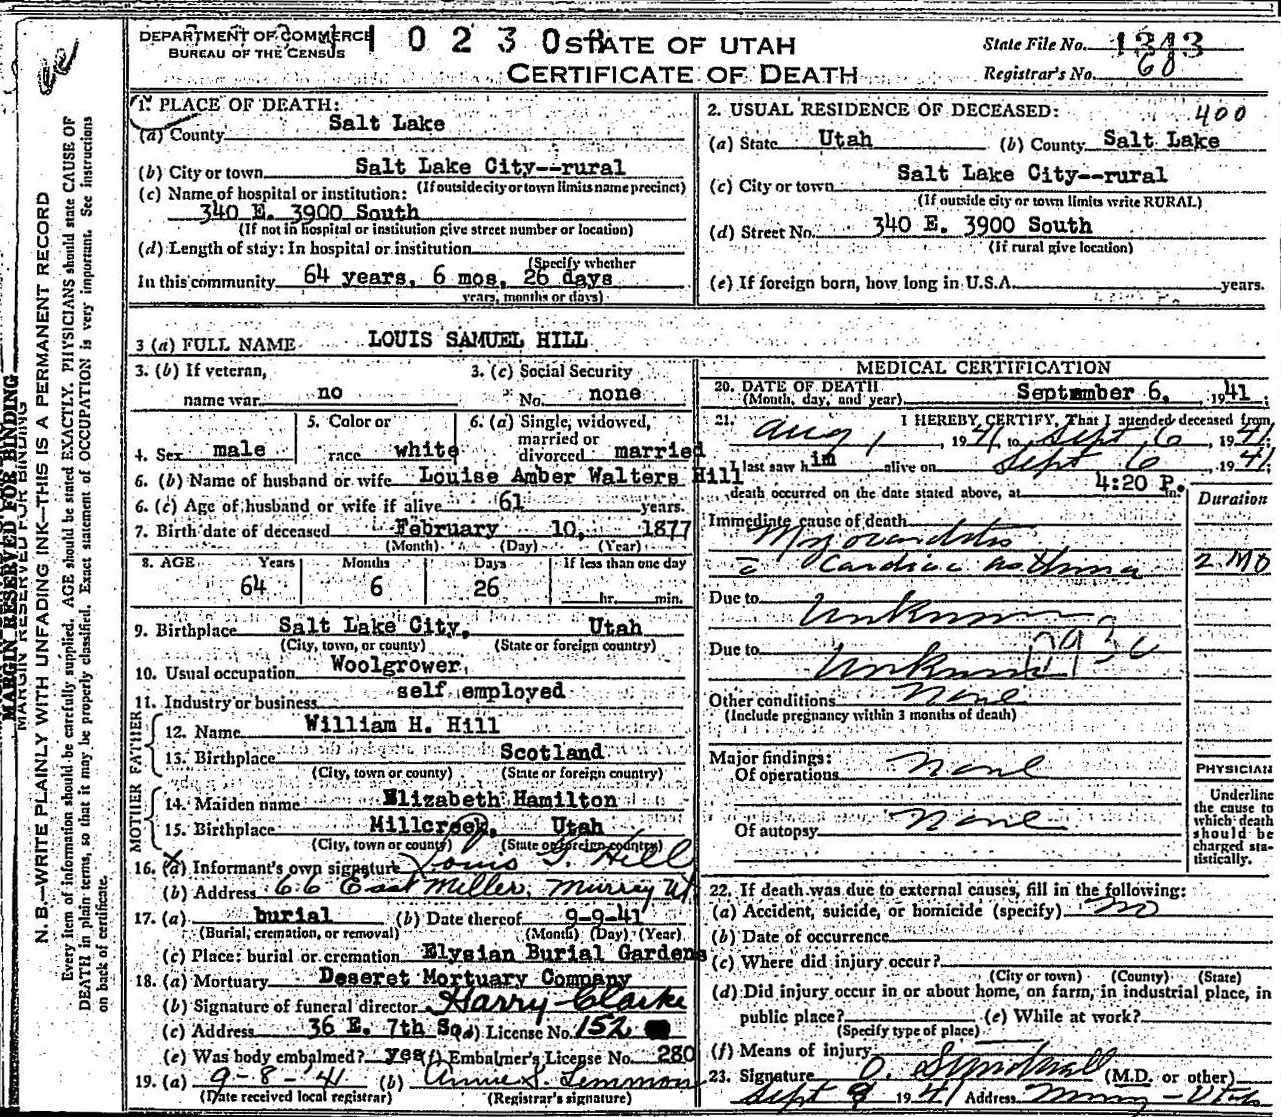 DEPARTMENT OF COMMERCE
BUREAU OF THE CENSUS
1 0 2 3 0
STATE OF UTAH
CERTIFICATE OF DEATH
State File No. 1313
Registrar's No. 60
1. PLACE OF DEATH:
(a) County Salt Lake
(b) City or town Salt Lake City--rural
(If outside city or town limits name precinct)
(c) Name of hospital or institution:
340 E. 3900 South
(If not in hospital or institution give street number or location)
(d) Length of stay: In hospital or institution
(Specify whether
In this community 64 years, 6 mos, 26 days
years, months or days)
2. USUAL RESIDENCE OF DECEASED: 400
(a) State Utah (b) County Salt Lake
(c) City or town Salt Lake City--rural
(If outside city or town limits write RURAL)
(d) Street No. 340 E. 3900 South
(If rural give location)
(e) If foreign born, how long in U.S.A. years.
3 (a) FULL NAME LOUIS SAMUEL HILL
3. (b) If veteran, name war no
3. (c) Social Security No. none
4. Sex male
5. Color or race white
6. (a) Single, widowed, married or divorced married
6. (b) Name of husband or wife Louise Amber Walters Hill
6. (c) Age of husband or wife if alive 61 years.
7. Birth date of deceased February 10, 1877
(Month) (Day) (Year)
8. AGE Years Months Days If less than one day
64 6 26 hr. min.
9. Birthplace Salt Lake City, Utah
(City, town, or county) (State or foreign country)
10. Usual occupation Woolgrower
11. Industry or business self employed
FATHER
12. Name William H. Hill
13. Birthplace Scotland
(City, town or county) (State or foreign country)
MOTHER
14. Maiden name Elizabeth Hamilton
15. Birthplace Millcreek, Utah
(City, town or county) (State or foreign country)
16. (a) Informant's own signature Louis G. Hill
(b) Address 66 East Miller, Murray Ut
17. (a) burial (b) Date thereof 9-9-41
(Burial, cremation, or removal) (Month) (Day) (Year)
(c) Place: burial or cremation Elysian Burial Gardens
18. (a) Mortuary Deseret Mortuary Company
(b) Signature of funeral director Harry Clarke
(c) Address 36 E. 7th So. (d) License No. 152
(e) Was body embalmed? yes (f) Embalmer's License No. 280
19. (a) 9-8-'41 (b) Annie S. Lemmon
(Date received local registrar) (Registrar's signature)
MEDICAL CERTIFICATION
20. DATE OF DEATH September 6, 1941;
(Month, day, and year)
21. I HEREBY CERTIFY, That I attended deceased from
Aug 1, 1941, to Sept 6 1941;
I last saw him alive on Sept 6 1941
death occurred on the date stated above, at 4:20 P. m.
Duration
Immediate cause of death
Myocarditis
c Cardiac asthma 2 MO
Due to Unknown
Due to Unknown
Other conditions None
(Include pregnancy within 3 months of death)
Major findings:
Of operations None
Of autopsy None
PHYSICIAN
Underline
the cause to
which death
should be
charged sta-
tistically.
22. If death was due to external causes, fill in the following:
(a) Accident, suicide, or homicide (specify) no
(b) Date of occurrence
(c) Where did injury occur?
(City or town) (County) (State)
(d) Did injury occur in or about home, on farm, in industrial place, in
public place? (e) While at work?
(Specify type of place)
(f) Means of injury
23. Signature O. Sundwall (M.D. or other)
Sept 9 1941 Address Murray - Utah
MARGIN RESERVED FOR BINDING
MARGIN RESERVED FOR BINDING
N. B.—WRITE PLAINLY WITH UNFADING INK—THIS IS A PERMANENT RECORD
Every item of information should be carefully supplied. AGE should be stated EXACTLY. PHYSICIANS should state CAUSE OF
DEATH in plain terms, so that it may be properly classified. Exact statement of OCCUPATION is very important. See instructions
on back of certificate.